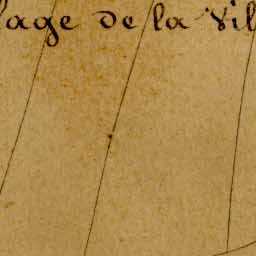 lage de la Vil